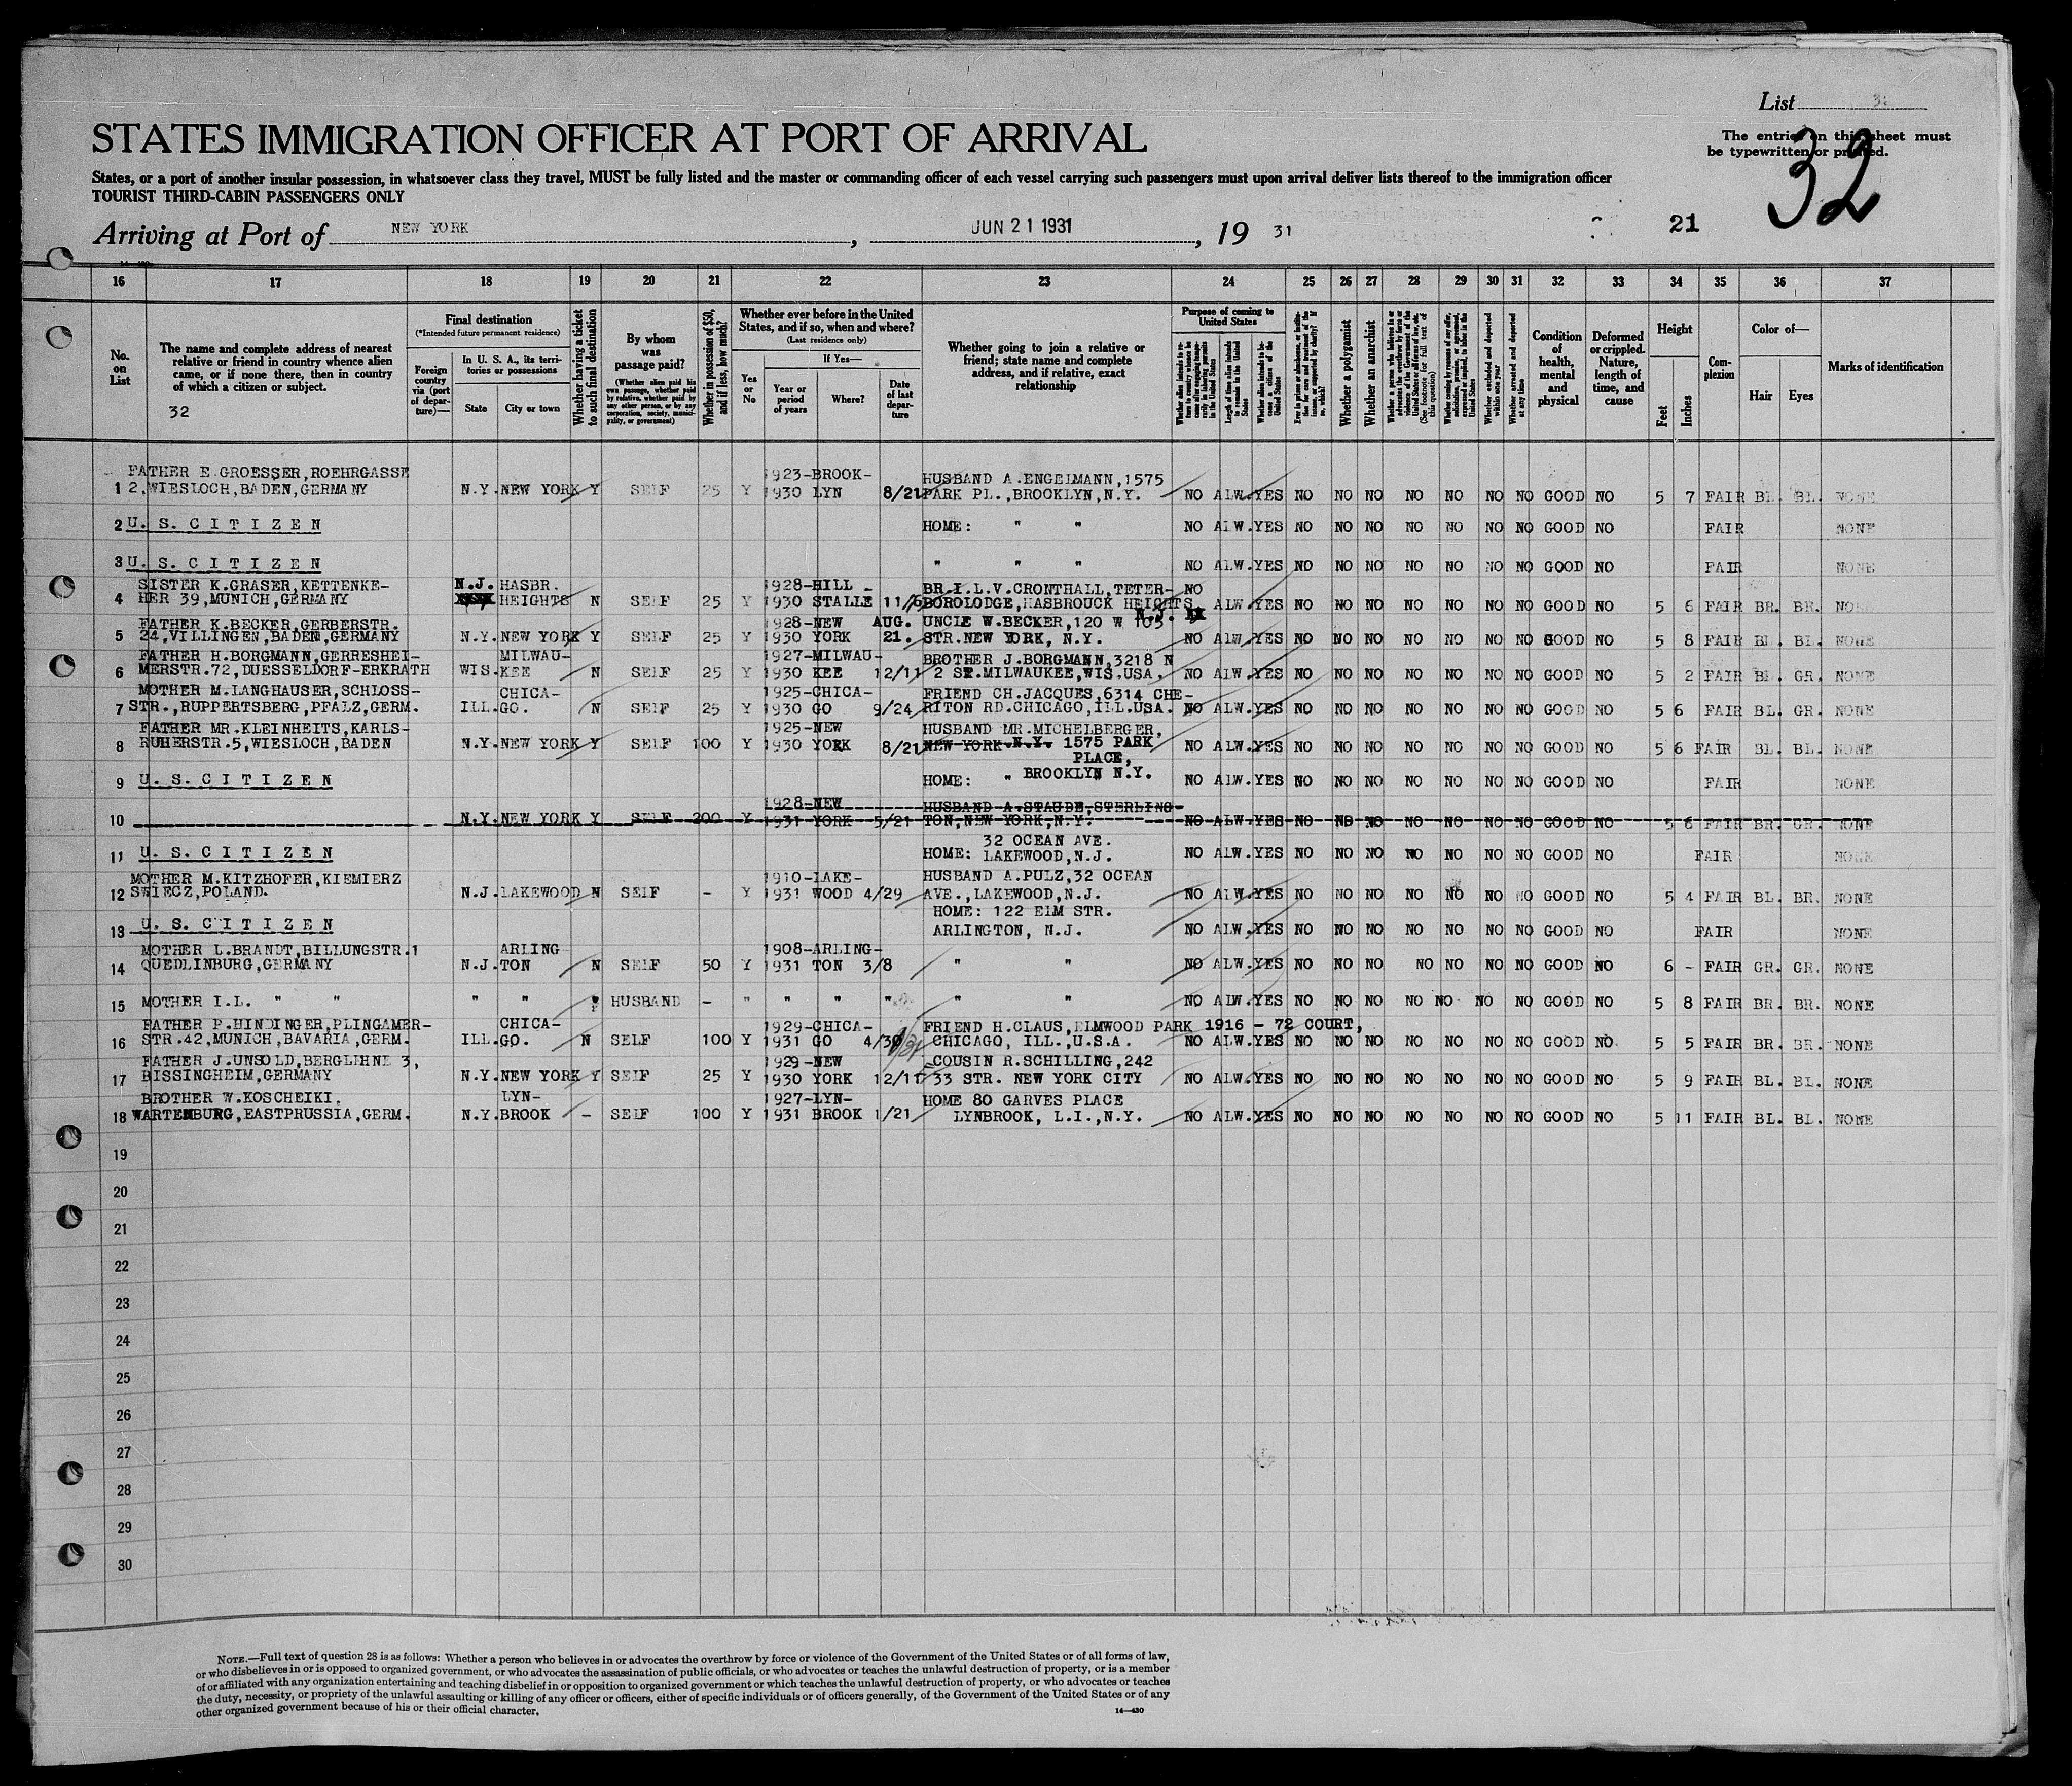 List 32
STATES IMMIGRATION OFFICER AT PORT OF ARRIVAL
The entries on this sheet must
be typewritten or printed.
32
States, or a port of another insular possession, in whatsoever class they travel, MUST be fully listed and the master or commanding officer of each vessel carrying such passengers must upon arrival deliver lists thereof to the immigration officer
TOURIST THIRD-CABIN PASSENGERS ONLY
Arriving at Port of NEW YORK, JUN 21 1931, 19 31
21
16 17 18 19 20 21 22 23 24 25 26 27 28 29 30 31 32 33 34 35 36 37
No. on List
The name and complete address of nearest relative or friend in country whence alien came, or if none there, then in country of which a citizen or subject.
32
Final destination
(*Intended future permanent residence)
Foreign country via (port of departure)—
In U. S. A., its territories or possessions
State
City or town
Whether having a ticket to such final destination
By whom was passage paid?
(Whether alien paid his own passage, whether paid by relative, whether paid by any other person, or by any corporation, society, municipality, or government)
Whether in possession of $50, and if less, how much?
Whether ever before in the United States, and if so, when and where?
(Last residence only)
Yes or No
If Yes—
Year or period of years
Where?
Date of last departure
Whether going to join a relative or friend; state name and complete address, and if relative, exact relationship
Purpose of coming to United States
Length of time alien intends to remain in the United States
Whether alien intends to become a citizen of the United States
Whether a polygamist
Whether an anarchist
Whether excluded and deported within one year
Whether arrested and deported at any time
Condition of health, mental and physical
Deformed or crippled. Nature, length of time, and cause
Height
Feet
Inches
Complexion
Color of—
Hair
Eyes
Marks of identification
FATHER E.GROESSER,ROEHRGASSE 1923-BROOK- HUSBAND A.ENGELMANN,1575
1 2,WIESLOCH,BADEN,GERMANY N.Y. NEW YORK Y SELF 25 Y 1930 LYN 8/21 PARK PL.,BROOKLYN,N.Y. NO ALW. YES NO NO NO NO NO NO NO GOOD NO 5 7 FAIR BL. BL. NONE
2 U. S. C I T I Z E N HOME: " " NO ALW. YES NO NO NO NO NO NO NO GOOD NO FAIR NONE
3 U. S. C I T I Z E N " " " NO ALW. YES NO NO NO NO NO NO NO GOOD NO FAIR NONE
SISTER K.GRASER,KETTENKE- N.J. HASBR. 1928-HILL - BR.I.L.V.CRONTHALL,TETER- NO
4 HER 39,MUNICH,GERMANY HEIGHTS N SELF 25 Y 1930 STALLE 11/6 BOROLODGE,HASBROUCK HEIGHTS N.J. ALW. YES NO NO NO NO NO NO NO GOOD NO 5 6 FAIR BR. BR. NONE
FATHER K.BECKER,GERBERSTR. 1928-NEW AUG. UNCLE W.BECKER,120 W 103
5 24,VILLINGEN,BADEN,GERMANY N.Y. NEW YORK Y SELF 25 Y 1930 YORK 21. STR.NEW YORK, N.Y. NO ALW. YES NO NO NO NO NO NO NO GOOD NO 5 8 FAIR BL. BL. NONE
FATHER H.BORGMANN,GERRESHEI- MILWAU- 1927-MILWAU- BROTHER J.BORGMANN,3218 N
6 MERSTR.72,DUESSELDORF-ERKRATH WIS. KEE N SELF 25 Y 1930 KEE 12/11 2 ST.MILWAUKEE,WIS.USA. NO ALW. YES NO NO NO NO NO NO NO GOOD NO 5 2 FAIR BL. GR. NONE
MOTHER M.LANGHAUSER,SCHLOSS- CHICA- 1925-CHICA- FRIEND CH.JACQUES,6314 CHE-
7 STR.,RUPPERTSBERG,PFALZ,GERM. ILL. GO. N SELF 25 Y 1930 GO 9/24 RITON RD.CHICAGO,ILL.USA. NO ALW. YES NO NO NO NO NO NO NO GOOD NO 5 6 FAIR BL. GR. NONE
FATHER MR.KLEINHEITS,KARLS- 1925-NEW HUSBAND MR.MICHELBERGER,
8 RUHERSTR.5,WIESLOCH,BADEN N.Y. NEW YORK Y SELF 100 Y 1930 YORK 8/21 NEW YORK N.Y. 1575 PARK NO ALW. YES NO NO NO NO NO NO NO GOOD NO 5 6 FAIR BL. BL. NONE
PLACE,
9 U. S. C I T I Z E N HOME: " BROOKLYN N.Y. NO ALW. YES NO NO NO NO NO NO NO GOOD NO FAIR NONE
1928-NEW HUSBAND A.STAUDE,STERLING-
10 N.Y. NEW YORK Y SELF 200 Y 1931 YORK 5/21 TON,NEW YORK,N.Y. NO ALW. YES NO NO NO NO NO NO NO GOOD NO 5 6 FAIR BR. GR. NONE
32 OCEAN AVE.
11 U. S. C I T I Z E N HOME: LAKEWOOD,N.J. NO ALW. YES NO NO NO NO NO NO NO GOOD NO FAIR NONE
MOTHER M.KITZHOFER,KIEMIERZ 1910-LAKE- HUSBAND A.PULZ,32 OCEAN
12 SWIECZ,POLAND. N.J. LAKEWOOD N SELF - Y 1931 WOOD 4/29 AVE.,LAKEWOOD,N.J. NO ALW. YES NO NO NO NO NO NO NO GOOD NO 5 4 FAIR BL. BR. NONE
HOME: 122 ELM STR.
13 U. S. C I T I Z E N ARLINGTON, N.J. NO ALW. YES NO NO NO NO NO NO NO GOOD NO FAIR NONE
MOTHER L.BRANDT,BILLUNGSTR.1 ARLING 1908-ARLING-
14 QUEDLINBURG,GERMANY N.J. TON N SELF 50 Y 1931 TON 3/8 " " NO ALW. YES NO NO NO NO NO NO NO GOOD NO 6 - FAIR GR. GR. NONE
15 MOTHER I.L. " " " " " HUSBAND - " " " " " " NO ALW. YES NO NO NO NO NO NO NO GOOD NO 5 8 FAIR BR. BR. NONE
FATHER P.HINDINGER,PLINGAMER- CHICA- 1929-CHICA- FRIEND H.CLAUS,ELMWOOD PARK 1916 - 72 COURT,
16 STR.42,MUNICH,BAVARIA,GERM. ILL. GO. N SELF 100 Y 1931 GO 4/30 CHICAGO, ILL.,U.S.A. NO ALW. YES NO NO NO NO NO NO NO GOOD NO. 5 5 FAIR BR. BR. NONE
FATHER J.UNSOLD,BERGLIHNE 3, 1929-NEW COUSIN R.SCHILLING,242
17 BISSINGHEIM,GERMANY N.Y. NEW YORK Y SELF 25 Y 1930 YORK 12/11 33 STR. NEW YORK CITY NO ALW. YES NO NO NO NO NO NO NO GOOD NO 5 9 FAIR BL. BL. NONE
BROTHER W.KOSCHEIKI, LYN- 1927-LYN- HOME 80 GARVES PLACE
18 WARTENBURG,EASTPRUSSIA,GERM. N.Y. BROOK - SELF 100 Y 1931 BROOK 1/21 LYNBROOK, L.I.,N.Y. NO ALW. YES NO NO NO NO NO NO NO GOOD NO 5 11 FAIR BL. BL. NONE
19
20
21
22
23
24
25
26
27
28
29
30
NOTE.—Full text of question 28 is as follows: Whether a person who believes in or advocates the overthrow by force or violence of the Government of the United States or of all forms of law,
or who disbelieves in or is opposed to organized government, or who advocates the assassination of public officials, or who advocates or teaches the unlawful destruction of property, or is a member
of or affiliated with any organization entertaining and teaching disbelief in or opposition to organized government or which teaches the unlawful destruction of property, or who advocates or teaches
the duty, necessity, or propriety of the unlawful assaulting or killing of any officer or officers, either of specific individuals or of officers generally, of the Government of the United States or of any
other organized government because of his or their official character.
14—430